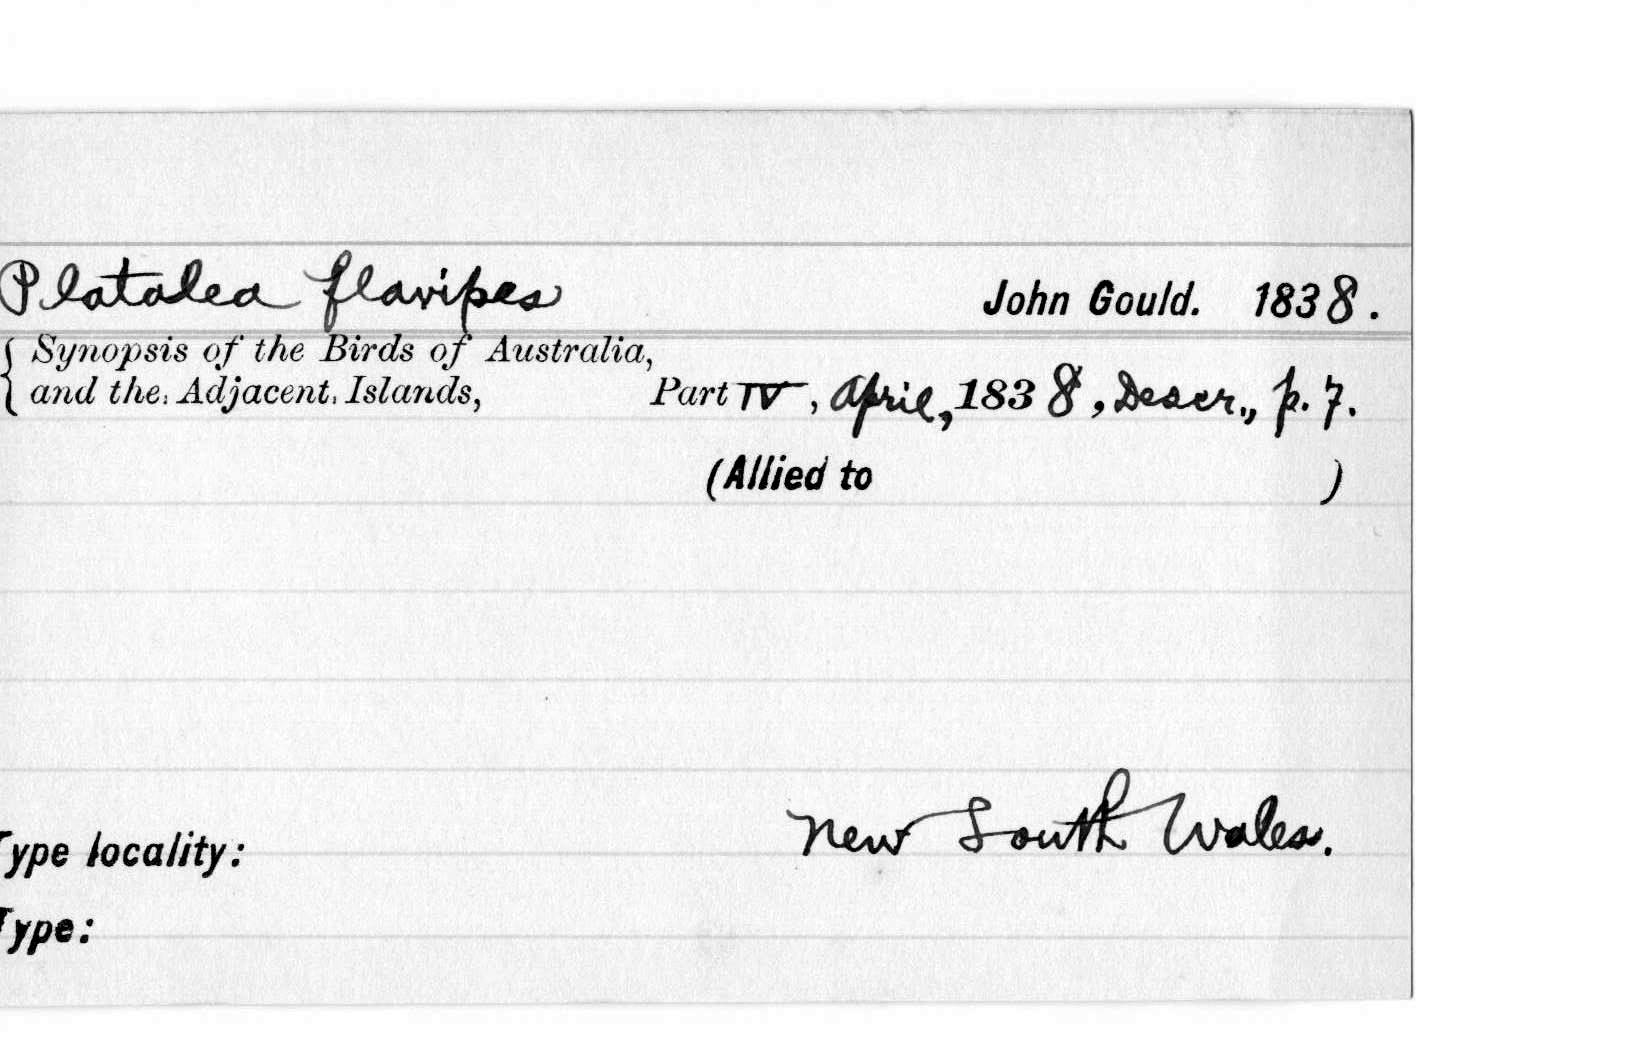 Platalea flavipes John Gould. 1838.
Synopsis of the Birds of Australia,
and the Adjacent Islands, Part IV, April, 1838, Descr., p. 7.
(Allied to )
New South Wales.
Type locality:
Type: